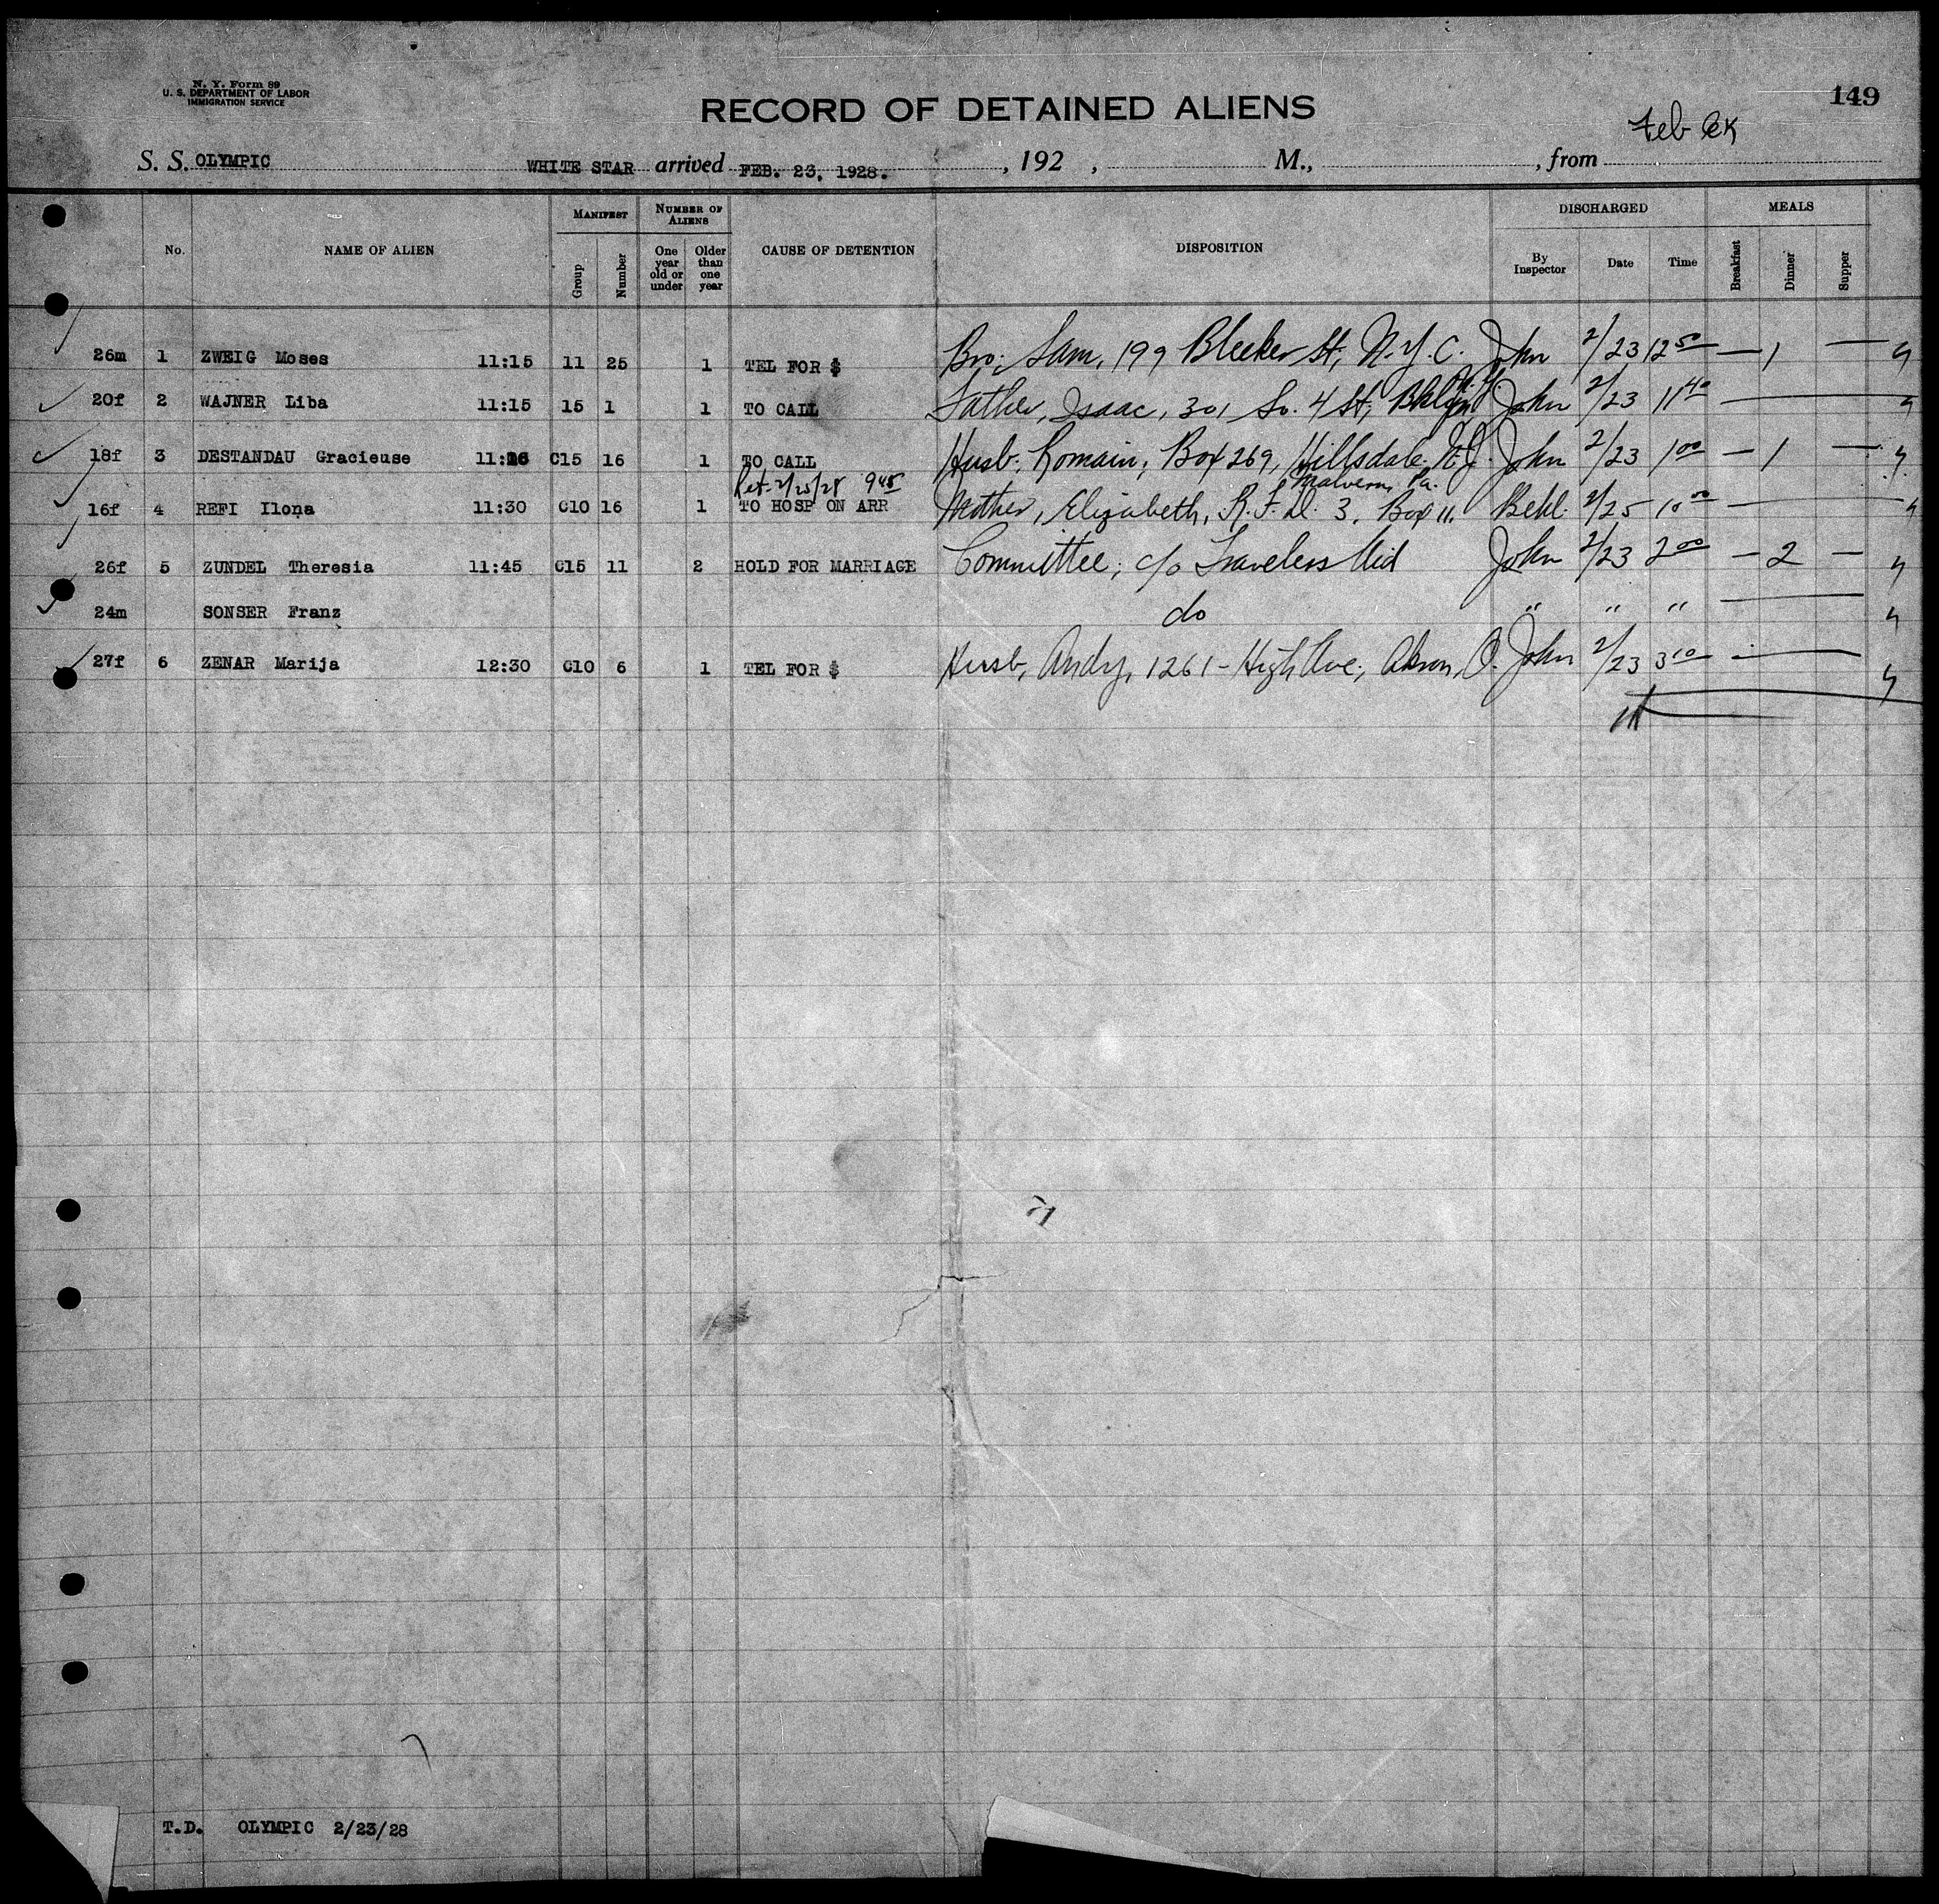 N. Y. Form 89
U. S. DEPARTMENT OF LABOR
IMMIGRATION SERVICE
149
RECORD OF DETAINED ALIENS
Feb
S. S. OLYMPIC WHITE STAR arrived FEB. 23, 1928. , 192 , M., , from
MANIFEST NUMBER OF ALIENS DISCHARGED MEALS
No. NAME OF ALIEN Group Number One year old or under Older than one year CAUSE OF DETENTION DISPOSITION By Inspector Date Time Breakfast Dinner Supper
26m 1 ZWEIG Moses 11:15 11 25 1 TEL FOR $ Bro. Sam, 199 Bleeker St, N.Y.C. John 2/23 12 50 — 1 —
20f 2 WAJNER Liba 11:15 15 1 1 TO CALL Father, Isaac, 301 So. 4 St, Bklyn N.Y. John 2/23 11 40 —
18f 3 DESTANDAU Gracieuse C15 16 1 TO CALL Husb. Romain, Box 269, Hillsdale, N.J. John 2/23 1 00 — 1 —
Ret. 2/25/28 9 45 Malvern, Pa.
16f 4 REFI Ilona 11:30 C10 16 1 TO HOSP ON ARR Mother, Elizabeth, R.F.D. 3, Box 11. Behl. 2/25 10 00 —
26f 5 ZUNDEL Theresia 11:45 C15 11 2 HOLD FOR MARRIAGE Committee, c/o Travelers Aid John 2/23 2 00 — 2 —
24m SONSER Franz do " " " —
27f 6 ZENAR Marija 12:30 C10 6 1 TEL FOR $ Husb, Andy, 1261 - High Ave, Akron, O. John 2/23 3 10 —
T.D. OLYMPIC 2/23/28